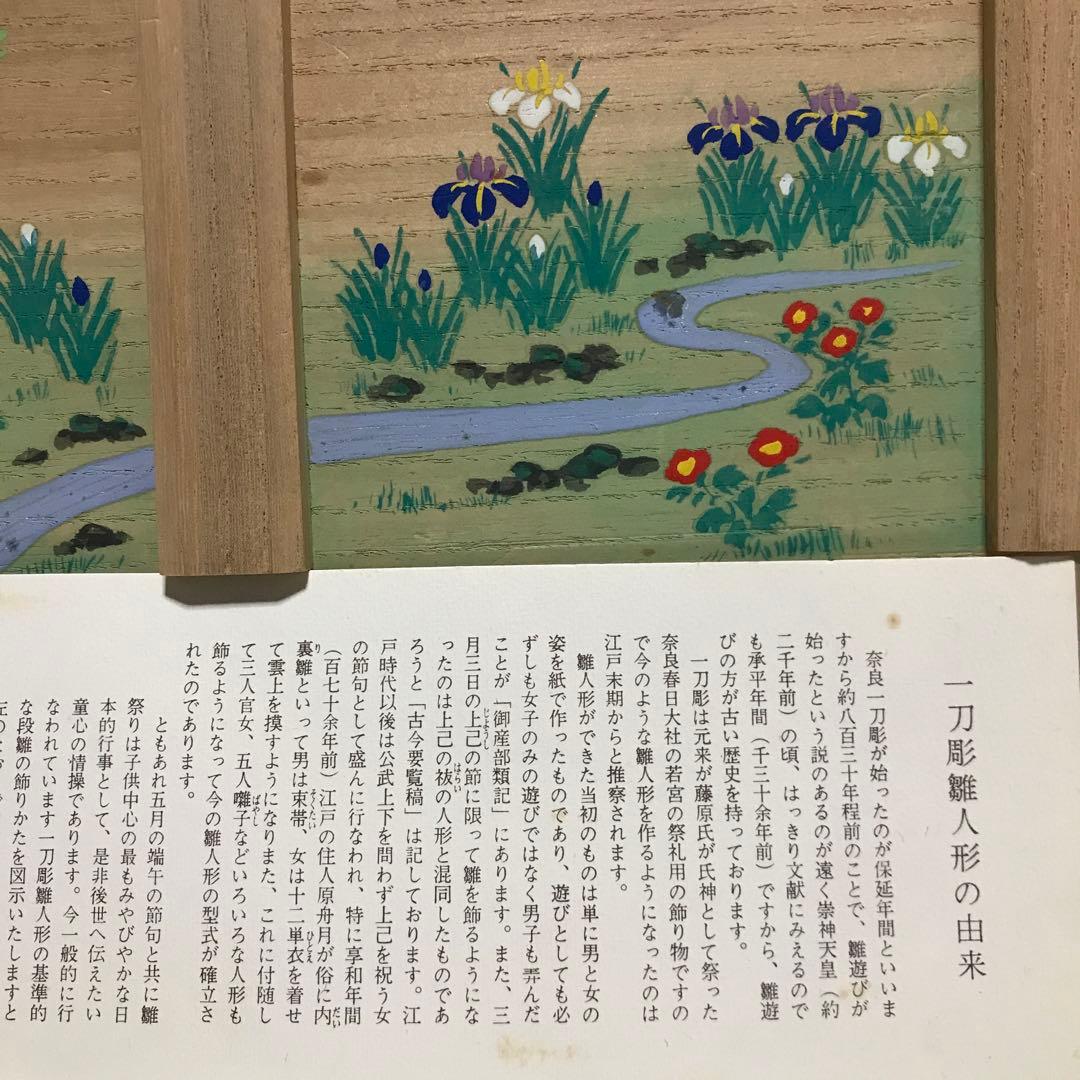 一刀彫雛人形の由来
奈良一刀彫が始ったのが保延年間といいま
すから約八百三十年程前のことで、雛遊びが
始ったという説のあるのが遠く崇神天皇（約
二千年前）の頃、はっきり文献にみえるので
も承平年間（千三十余年前）ですから、雛遊
びの方が古い歴史を持っております。
一刀彫は元来が藤原氏が氏神として祭った
奈良春日大社の若宮の祭礼用の飾り物ですの
で今のような雛人形を作るようになったのは
江戸末期からと推察されます。
雛人形ができた当初のものは単に男と女の
姿を紙で作ったものであり、遊びとしても必
ずしも女子のみの遊びではなく男子も弄んだ
ことが「御産部類記」にあります。また、三
月三日の上己の節に限って雛を飾るようにな
ったのは上己の祓の人形と混同したものであ
ろうと「古今要覧稿」は記しております。江
戸時代以後は公武上下を問わず上己を祝う女
の節句として盛んに行なわれ、特に享和年間
（百七十余年前）江戸の住人原舟月が俗に内
裏雛といって男は束帯、女は十二単衣を着せ
て雲上を摸すようになりまた、これに付随し
て三人官女、五人囃子などいろいろな人形も
飾るようになって今の雛人形の型式が確立さ
れたのであります。
ともあれ五月の端午の節句と共に雛
祭りは子供中心の最もみやびやかな日
本的行事として、是非後世へ伝えたい
童心の情操であります。今一般的に行
なわれています一刀彫雛人形の基準的
な段雛の飾りかたを図示いたしますと